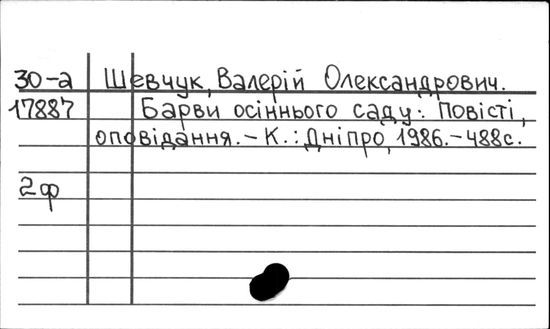 30-а Шевчук, Валерій Олександрович.
17887 Барви осіннього саду: Повісті,
оповідання. - К.: Дніпро, 1986. - 488с.
2ф